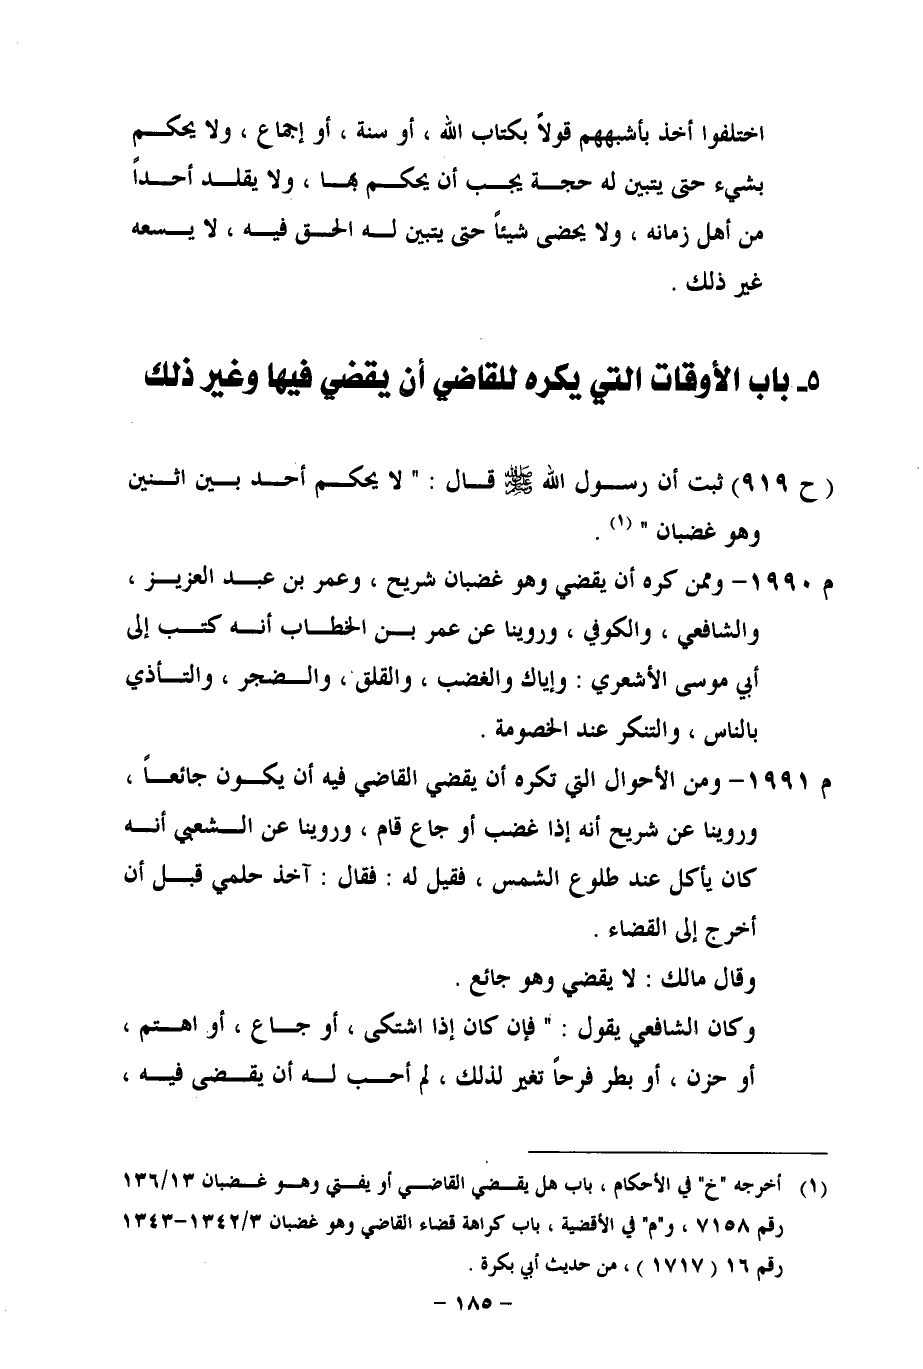 اختلفوا أخذ بأشبههم قولاً بكتاب الله ، أو سنة ، أو إجماع ، ولا يحكم
بشيء حتى يتبين له حجة يجب أن يحكم بها ، ولا يقلد أحداً
من أهل زمانه ، ولا يحضى شيئاً حتى يتبين له الحق فيه ، لا يسعه
غير ذلك .
٥ـ باب الأوقات التي يكره للقاضي أن يقضي فيها وغير ذلك
( ح ٩١٩) ثبت أن رسول الله ﷺ قال : " لا يحكم أحد بين اثنين
وهو غضبان " (١) .
م ١٩٩٠– وممن كره أن يقضي وهو غضبان شريح ، وعمر بن عبد العزيز ،
والشافعي ، والكوفي ، وروينا عن عمر بن الخطاب أنه كتب إلى
أبي موسى الأشعري : وإياك والغضب ، والقلق ، والضجر ، والتأذي
بالناس ، والتنكر عند الخصومة .
م ١٩٩١– ومن الأحوال التي تكره أن يقضي القاضي فيه أن يكون جائعاً ،
وروينا عن شريح أنه إذا غضب أو جاع قام ، وروينا عن الشعبي أنه
كان يأكل عند طلوع الشمس ، فقيل له : فقال : آخذ حلمي قبل أن
أخرج إلى القضاء .
وقال مالك : لا يقضي وهو جائع .
وكان الشافعي يقول : " فإن كان إذا اشتكى ، أو جاع ، أو اهتم ،
أو حزن ، أو بطر فرحاً تغير لذلك ، لم أحب له أن يقضى فيه ،
(١) أخرجه "خ" في الأحكام ، باب هل يقضي القاضي أو يفتي وهو غضبان ١٣٦/١٣
رقم ٧١٥٨ ، و"م" في الأقضية ، باب كراهة قضاء القاضي وهو غضبان ١٣٤٢/٣–١٣٤٣
رقم ١٦ ( ١٧١٧ ) ، من حديث أبي بكرة .
– ١٨٥ –